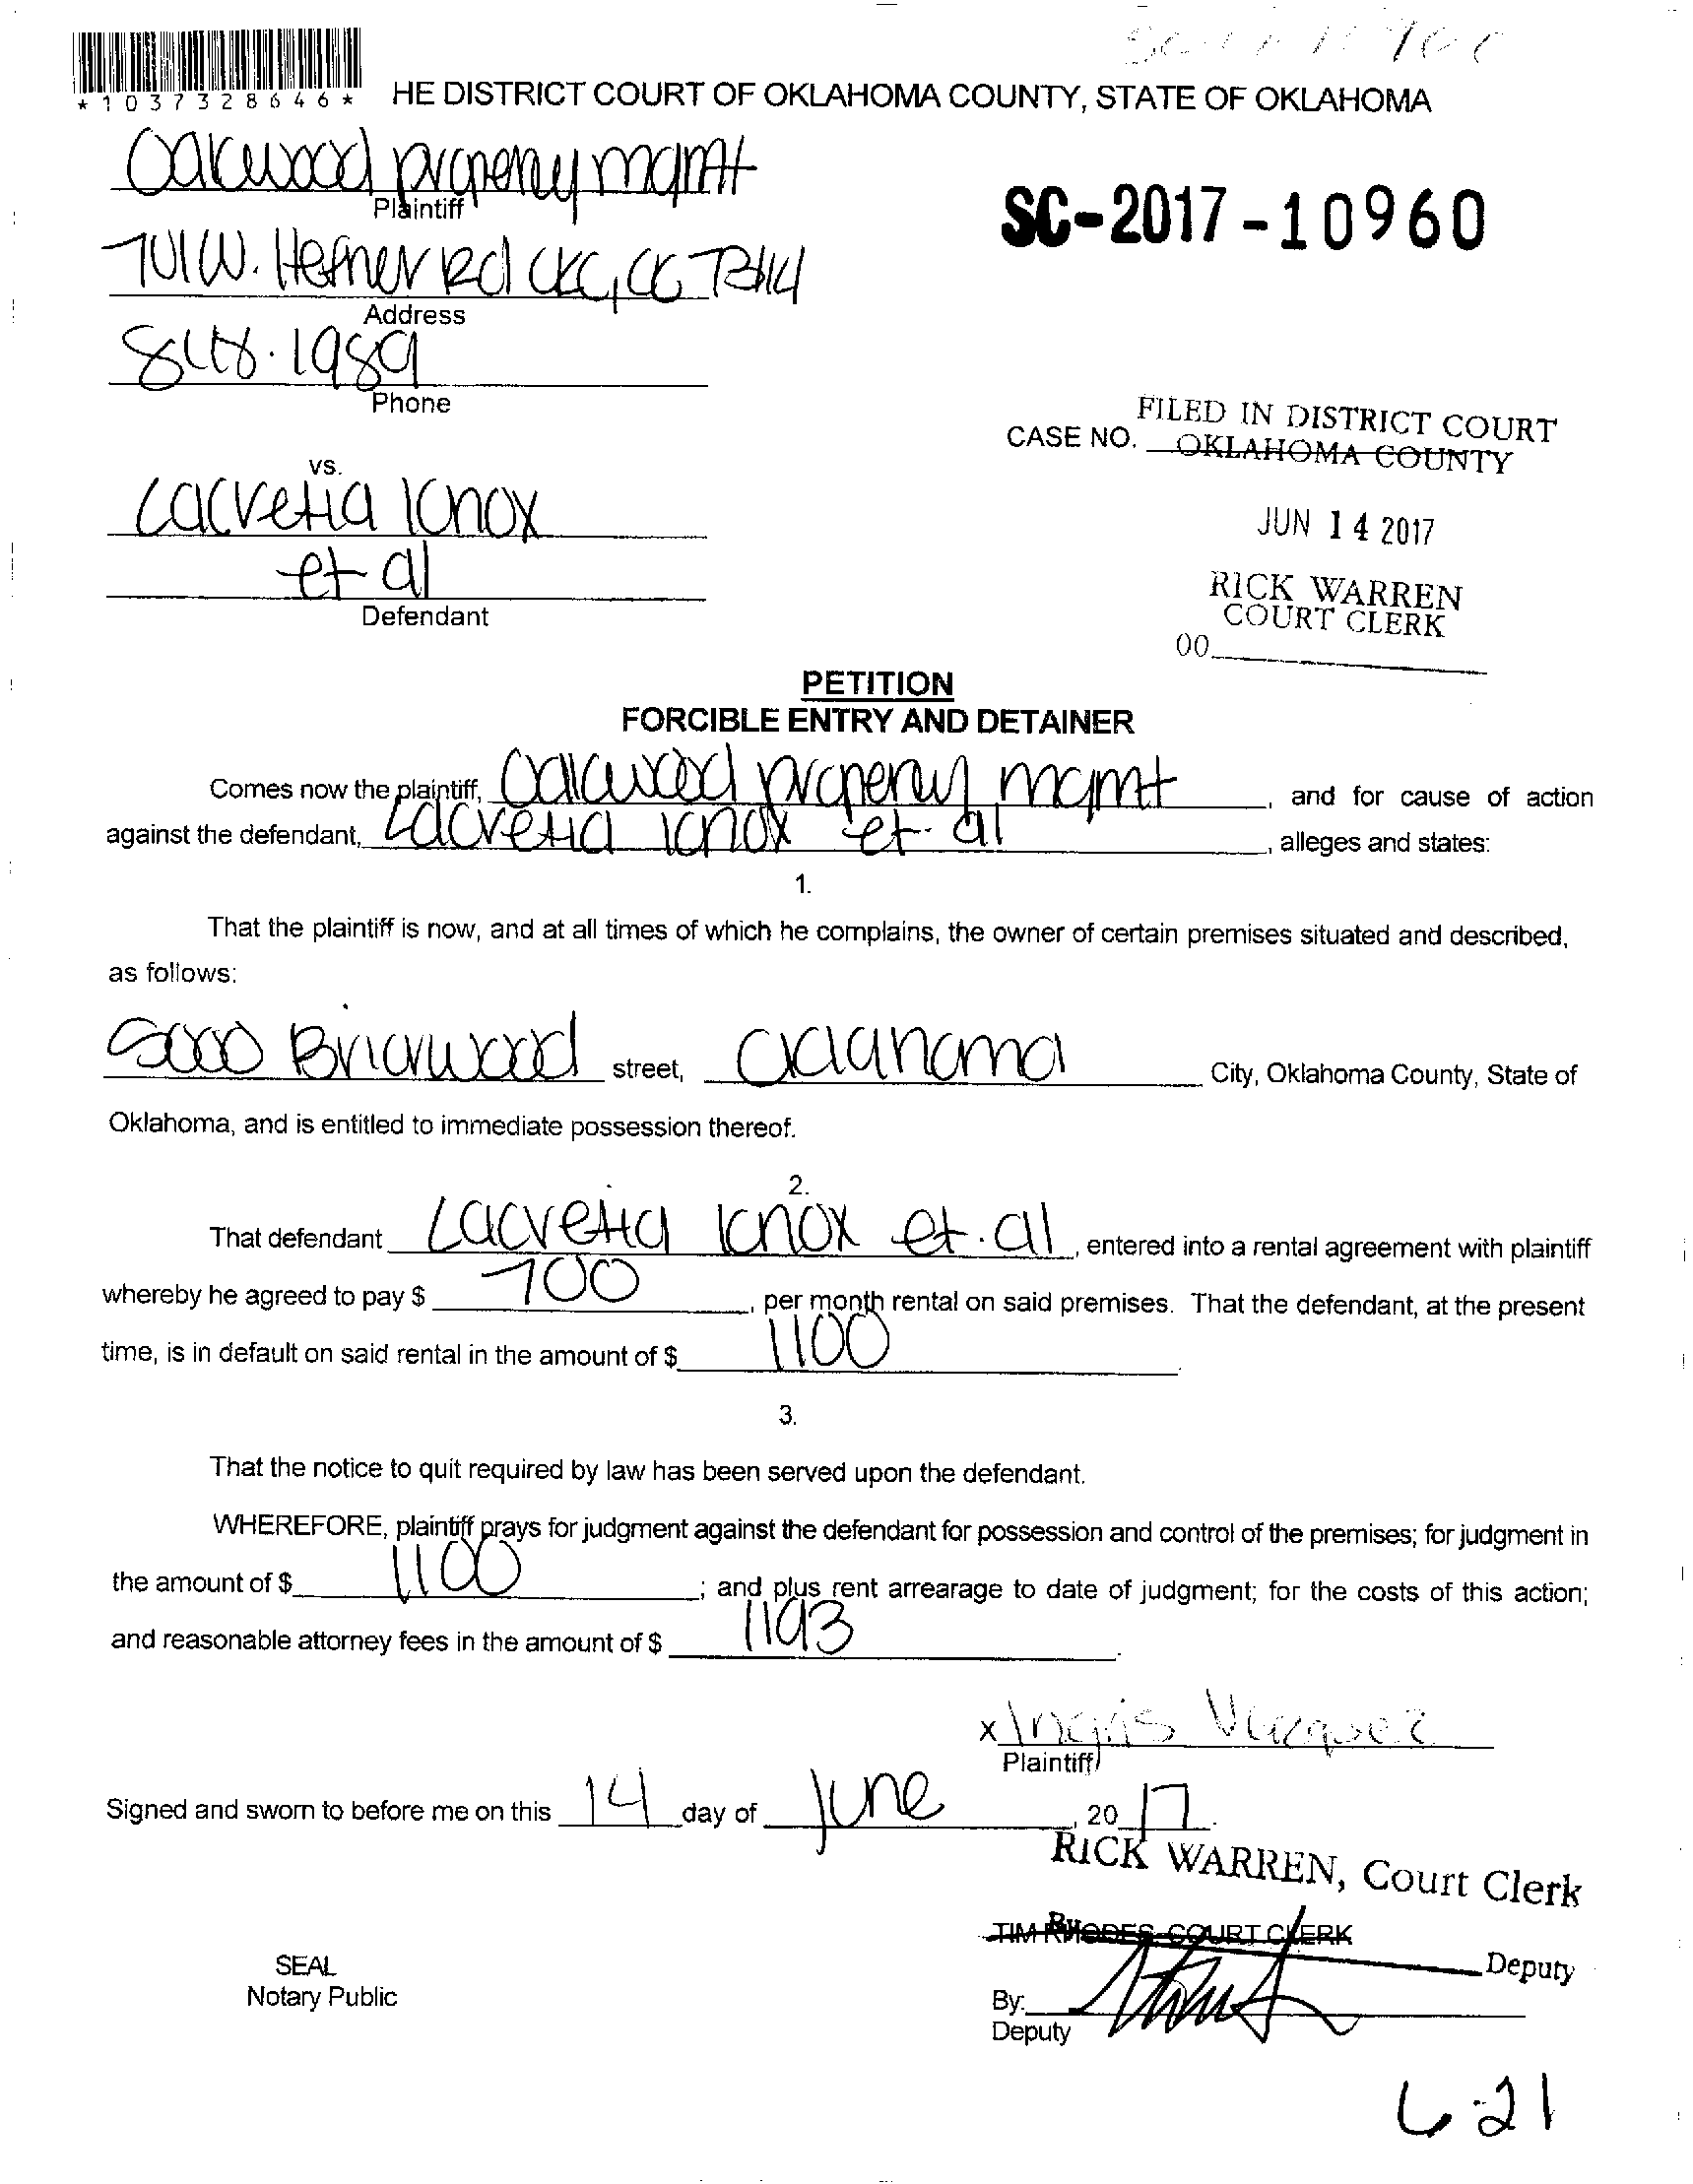 *1037328646*
HE DISTRICT COURT OF OKLAHOMA COUNTY, STATE OF OKLAHOMA
Oakwood property mgmt
Plaintiff
SC-2017-10960
W. Hefner Rd OKC, OK 73114
Address
848.1989
Phone
FILED IN DISTRICT COURT
CASE NO. OKLAHOMA COUNTY
vs.
Lacretia Knox
JUN 14 2017
et al
RICK WARREN
Defendant
COURT CLERK
00
PETITION
FORCIBLE ENTRY AND DETAINER
Comes now the plaintiff, Oakwood property mgmt, and for cause of action
against the defendant, Lacretia Knox et. al, alleges and states:
1.
That the plaintiff is now, and at all times of which he complains, the owner of certain premises situated and described,
as follows:
Briarwood street, Oklahoma City, Oklahoma County, State of
Oklahoma, and is entitled to immediate possession thereof.
2.
That defendant Lacretia Knox et. al, entered into a rental agreement with plaintiff
whereby he agreed to pay $ 700, per month rental on said premises. That the defendant, at the present
time, is in default on said rental in the amount of $ 1100.
3.
That the notice to quit required by law has been served upon the defendant.
WHEREFORE, plaintiff prays for judgment against the defendant for possession and control of the premises; for judgment in
the amount of $ 1100; and plus rent arrearage to date of judgment; for the costs of this action;
and reasonable attorney fees in the amount of $ 1193.
x Ingris Vazquez
Plaintiff
Signed and sworn to before me on this 14 day of June, 2017.
RICK WARREN, Court Clerk
TIM RHODES, COURT CLERK
By
Deputy
SEAL
Notary Public
By:
Deputy
6-21